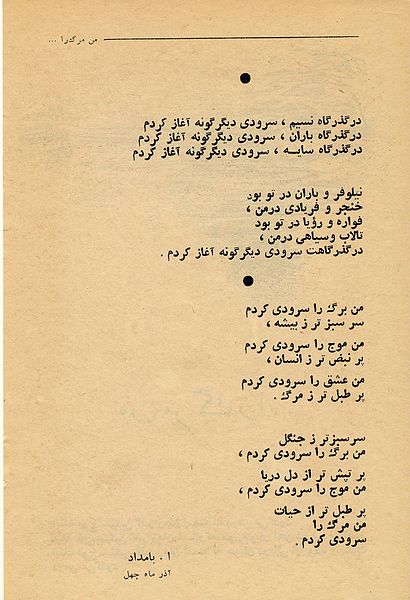 من مرگ‌را ...
درگذرگاه نسیم ، سرودی دیگرگونه آغاز کردم
درگذرگاه باران ، سرودی دیگرگونه آغاز کردم
درگذرگاه سایــه ، سرودی دیگرگونه آغاز کردم
نیلوفر و باران در تو بود
خنجر و فریادی درمن ،
فواره و رؤیا در تو بود
تالاب وسیاهی درمن ،
درگذرگاهت سرودی دیگرگونه آغاز کردم .
من برگ را سرودی کردم
سر سبز تر ز بیشه ،
من موج را سرودی کردم
پر نبض تر ز انسان ،
من عشق را سرودی کردم
پر طبل تر ز مرگ .
سرسبزتر ز جنگل
من برگ را سرودی کردم ،
پر تپش تر از دل دریا
من موج را سرودی کردم ،
پر طبل تر از حیات
من مرگ را
سرودی کردم .
ا . بامداد
آذر ماه چهل